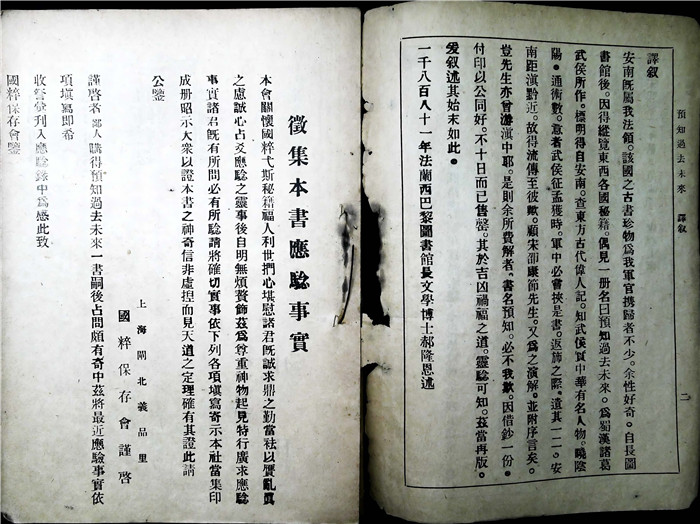 預知過去未來 譯叙
二
譯叙
安南旣屬我法領。該國之古書珍物爲我軍官携歸者不少。余性好奇。自長圖
書館後。因得縱覽東西各國秘籍。偶見一册名曰預知過去未來。爲蜀漢諸葛
武侯所作。標明得自安南。查東方古代偉人記。知武侯實中華有名人物。曉陰
陽。通術數。意者武侯征孟獲時。軍中必嘗挾是書。返旆之際。遺其一二。安
南距滇黔近。故得流傳至彼歟。顧宋邵康節先生。又爲之演解。並附序言矣。
豈先生亦曾游滇中耶。是則余所費解者。書名預知。必不我欺。因借鈔一份。
付印以公同好。不十日而已售罄。其於吉凶禍福之道。靈驗可知。茲當再版。
爰叙述其始末如此。
一千八百八十一年法蘭西巴黎圖書館長文學博士郝隆恩述
徵集本書應驗事實
本會關懷國粹弋斯秘籍福人利世捫心堪慰諸君旣誠求鼎之勤當祛以贋亂眞
之慮誠心占爻應驗之靈事後自明無煩贅飾茲爲尊重神物起見特行廣求應驗
事實諸君旣有所問必有所驗請將確切實事依下列各項塡寫寄示本社當集印
成册昭示大衆以證本書之神奇信非虛揑而見天道之定理確有其證此請
公鑒
上海閘北義品里
國粹保存會謹啓
謹啓者鄙人購得預知過去未來一書嗣後占問頗有奇中茲將最近應驗事實依
項塡寫卽希
收答彙刊入應驗錄中爲感此致
國粹保存會鑒